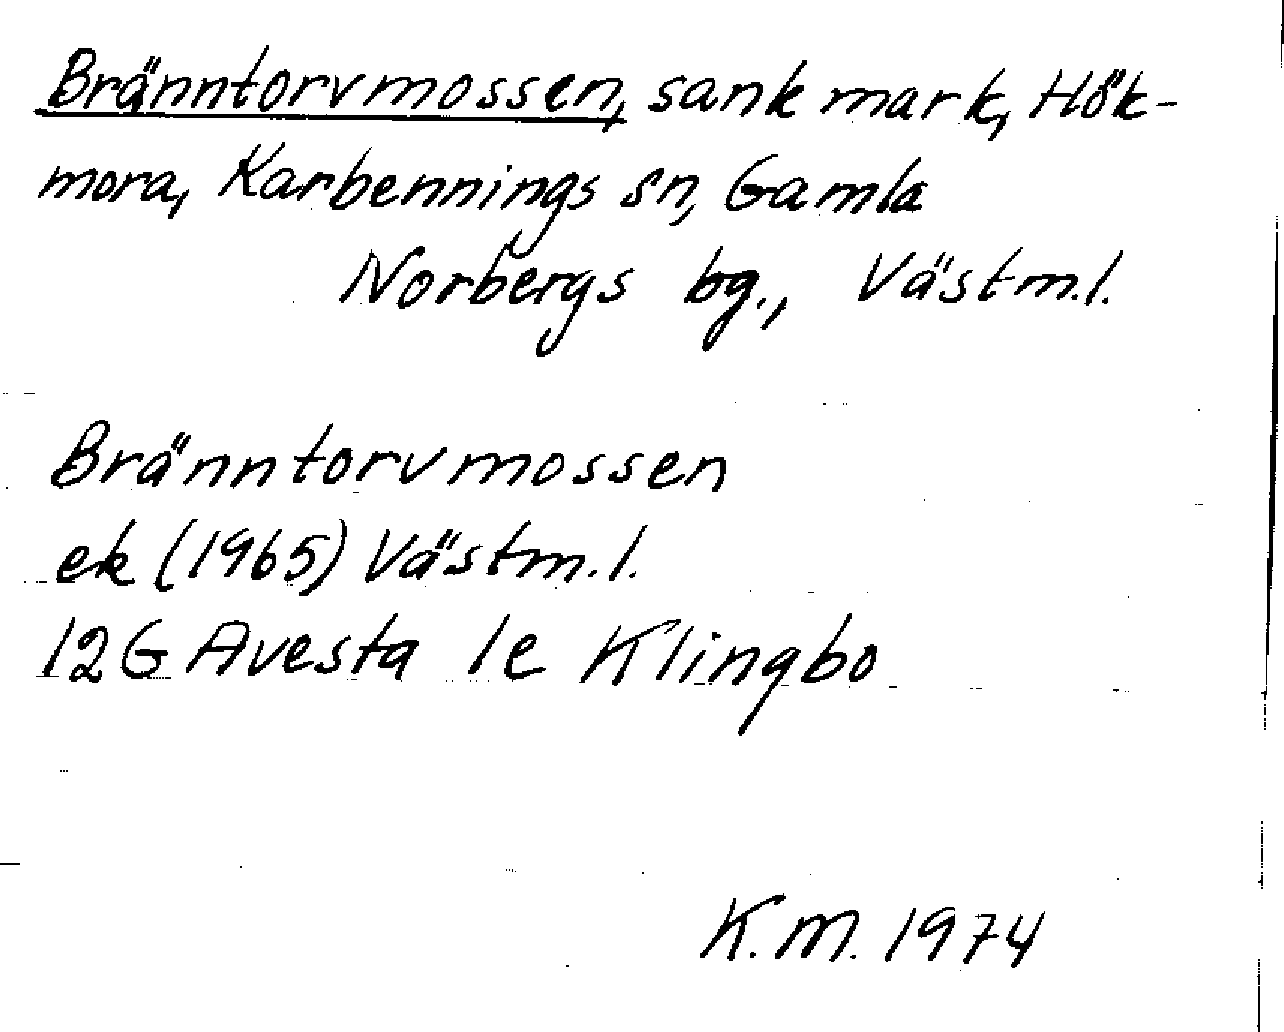 Bränntorvmossen, sank mark, Hök-
mora, Karbennings sn, Gamla
Norbergs bg., Västm.l.
Bränntorvmossen
ek (1965) Västm.l.
12G Avesta 1e Klingbo
K.M. 1974